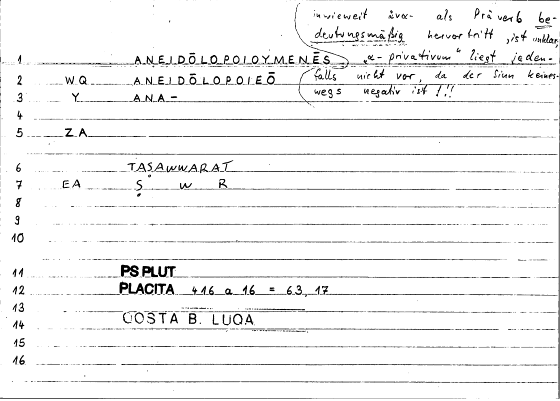 inwieweit ἀνα- als Präverb be-
deutungsmäßig hervortritt, ist unklar
„α-privativum" liegt jeden-
falls nicht vor, da der Sinn keines-
wegs negativ ist !!!
1 ANEIDŌLOPOIOYMENĒS
2 WQ ANEIDŌLOPOIEŌ
3 Y ANA-
4
5 ZA
6 TAṢAWWARAT
7 EA Ṣ W R
8
9
10
11 PS PLUT
12 PLACITA 416 a 16 = 63,17
13
14 COSTA B. LUQA
15
16